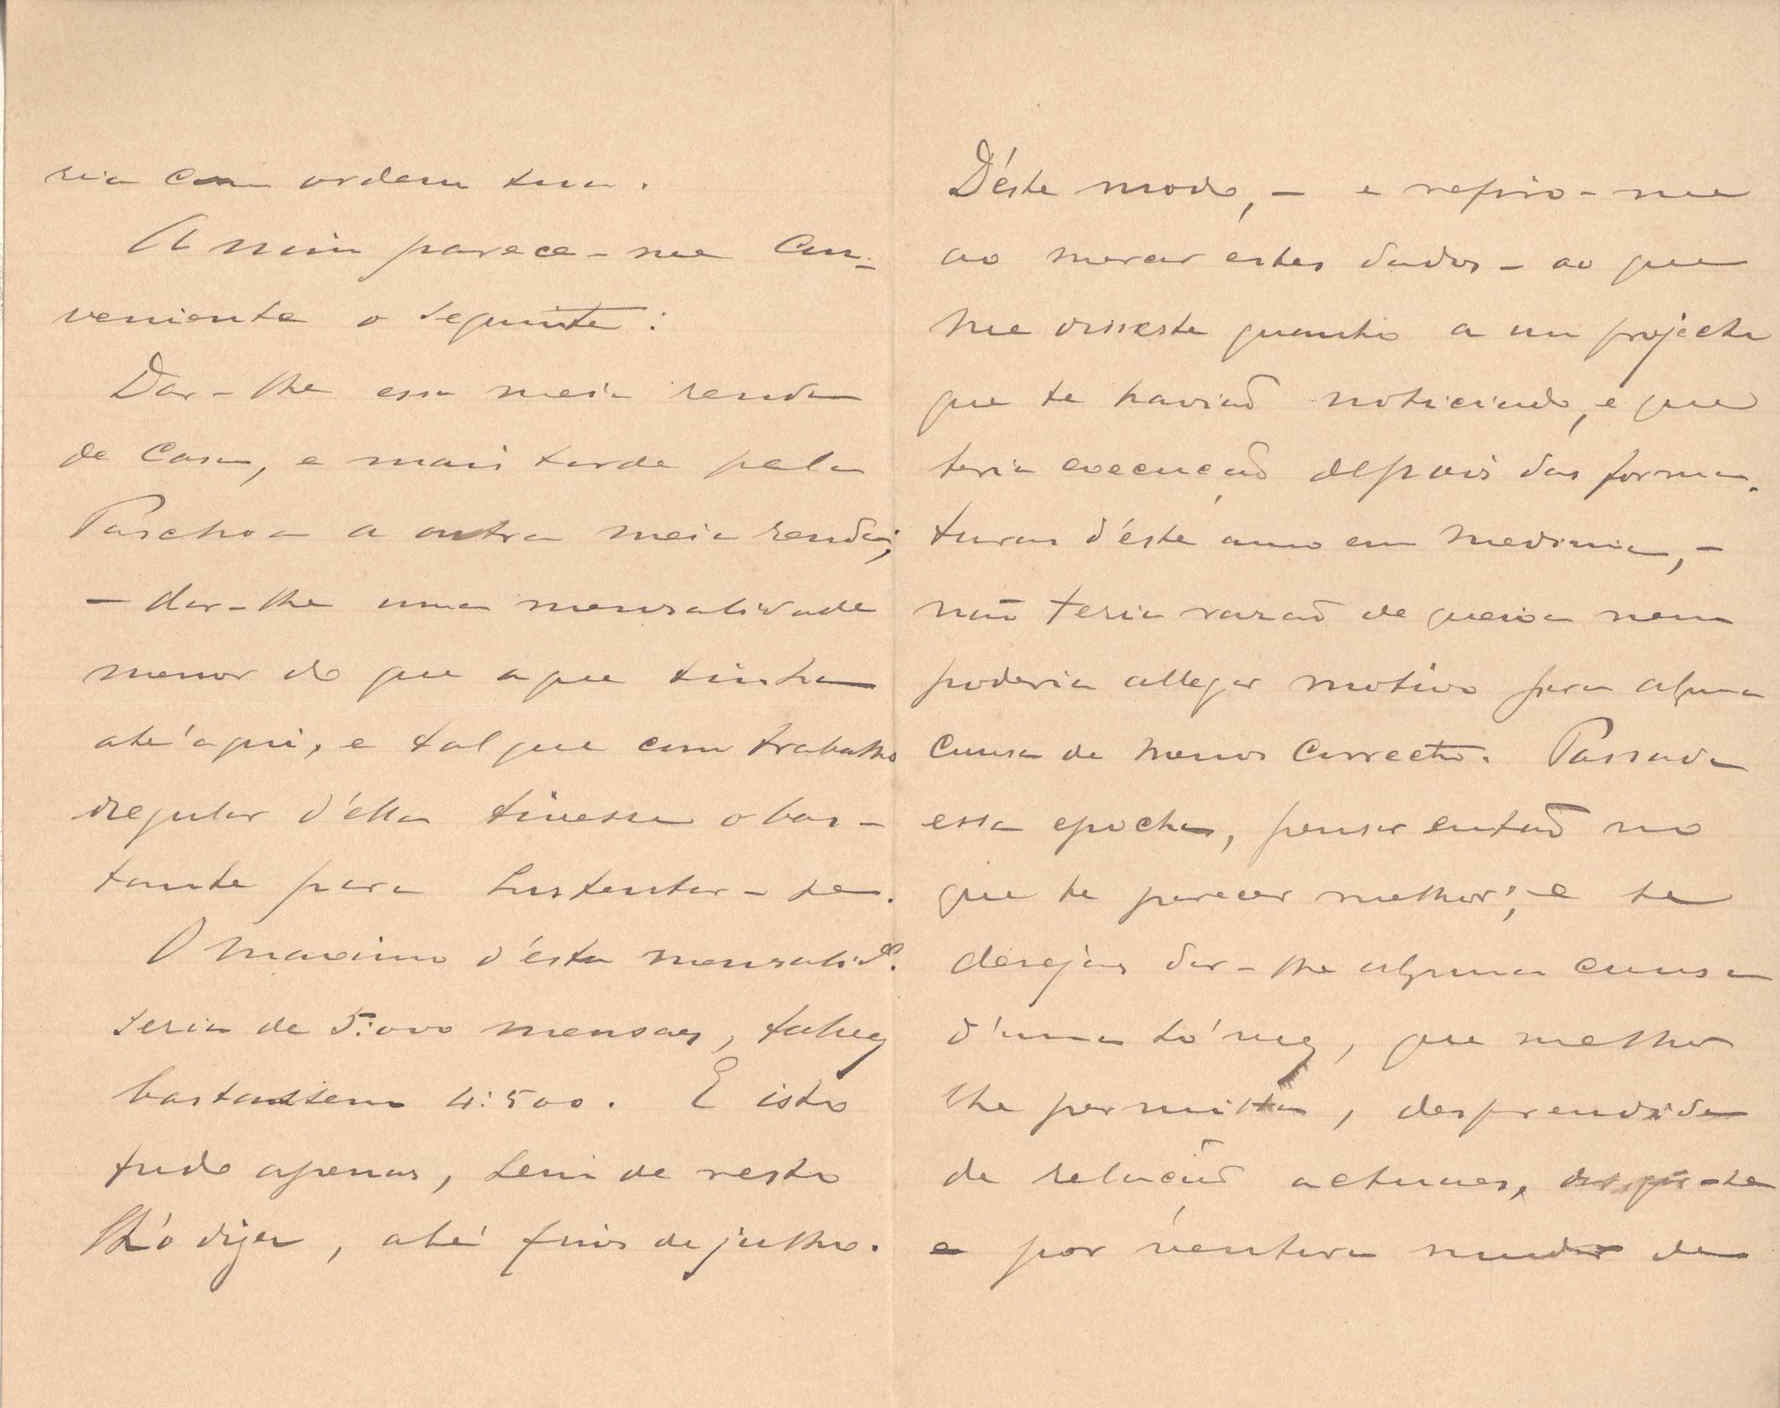 ria com ordem tua.
A mim parece-me con-
veniente o seguinte:
Dar-lhe essa meia renda
de casa, e mais tarde pela
Paschoa a outra meia renda;
- dar-lhe uma mensalidade
menor do que a que tinha
até'aqui, e tal que com trabalho
regular d'ella tivesse o bas-
tante para sustentar-se.
O maximo d'esta mensalid.e
seria de 5:000 mensaes, talvez
bastassem 4:500. E isto
tudo apenas, sem de resto
lh'o dizer, até fins de julho.
D'éste modo, - e refiro-me
ao marcar estes dados - ao que
me disseste quanto a um projecto
que te haviaõ noticiado, e que
teria execuçaõ depois das forma-
turas d'éste anno em medicina, -
não teria razaõ de queixa nem
poderia allegar motivo para alguma
cousa de menos correcto. Passada
essa epocha, pensar entaõ no
que te parecer melhor; e se
desejas dar-lhe alguma cousa
d'uma só vez, que melhor
lhe permitta, desprendida
de relaçaõ actuaes,
e por ventura mudar de